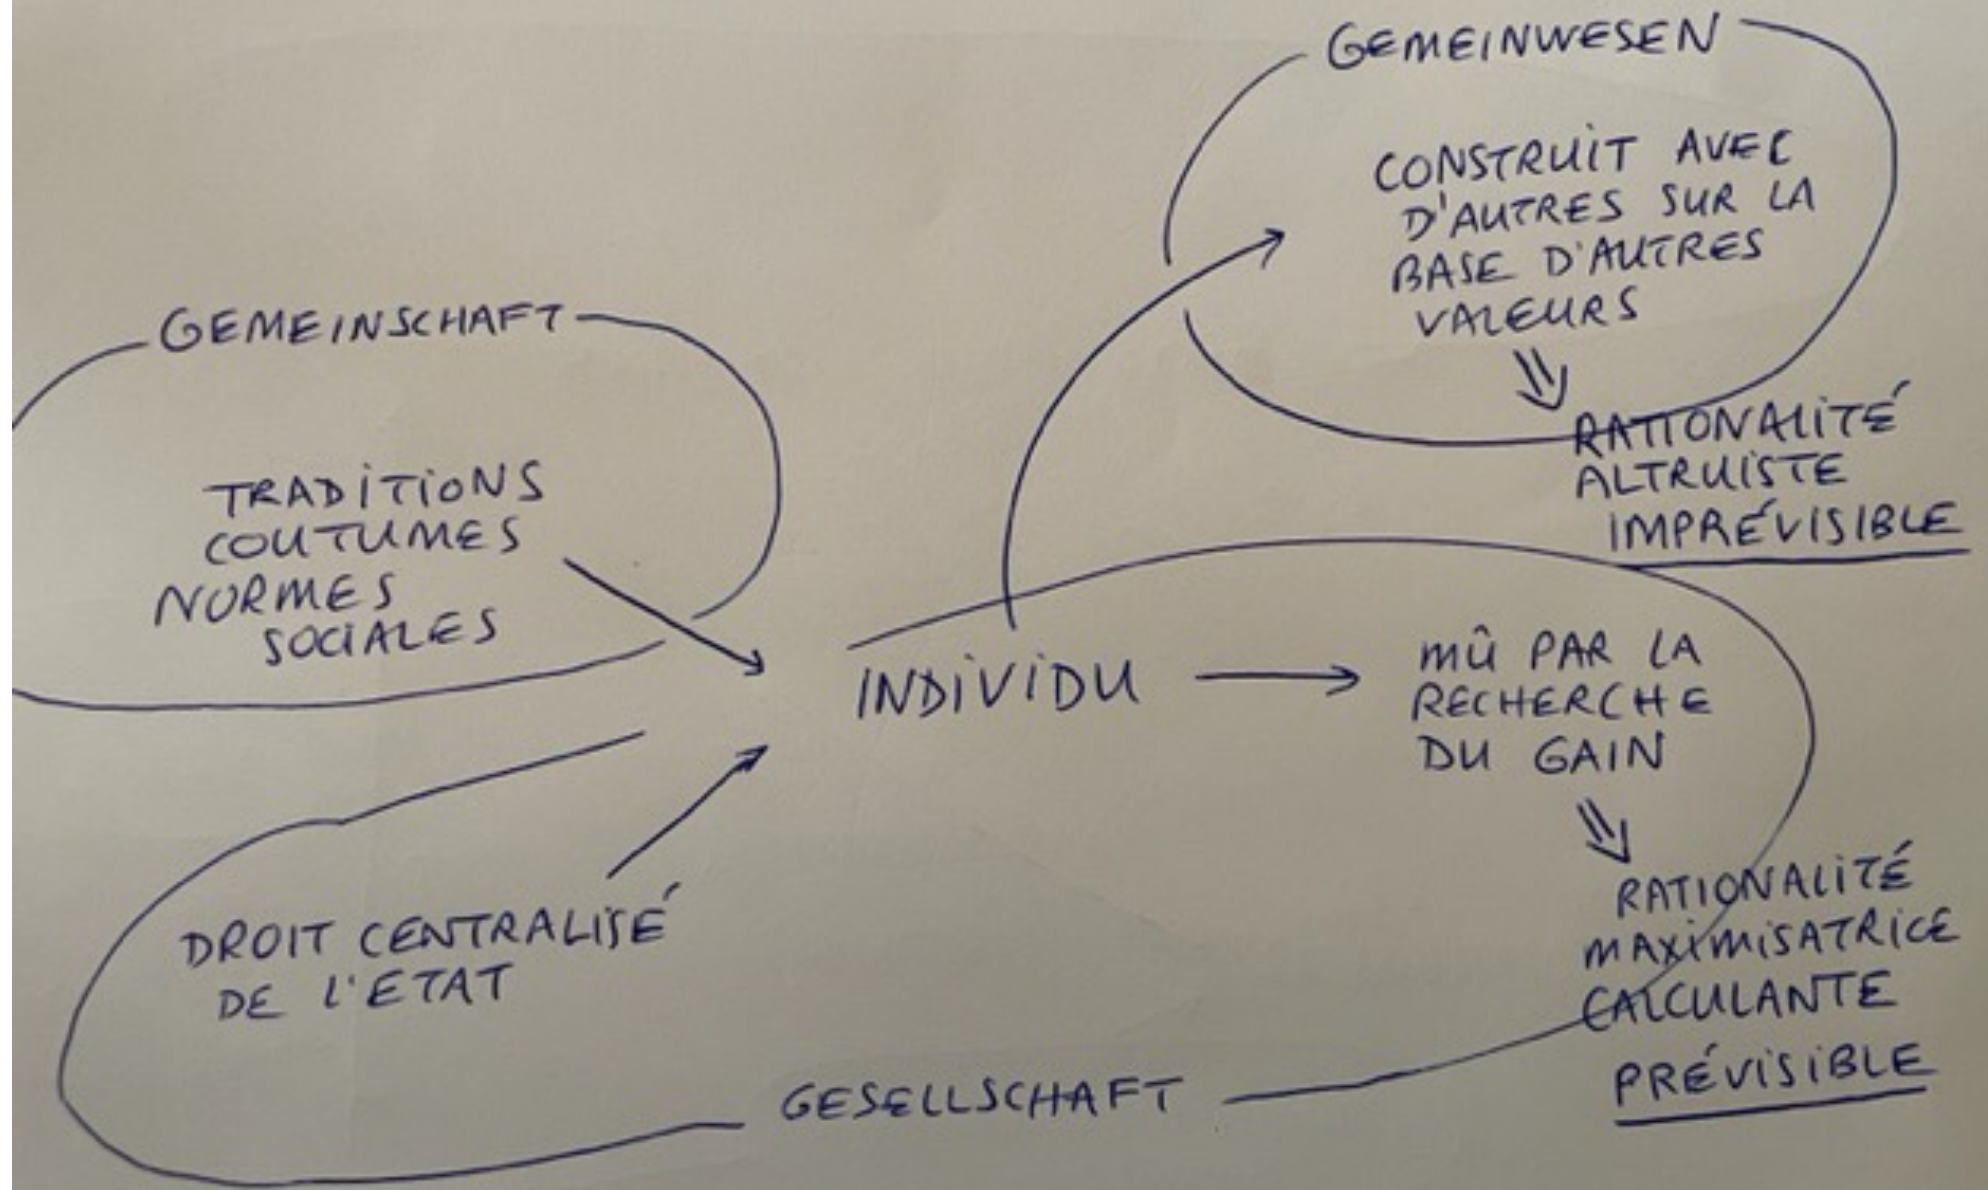 GEMEINWESEN
CONSTRUIT AVEC
D'AUTRES SUR LA
BASE D'AUTRES
VALEURS
RATIONALITÉ
ALTRUISTE
IMPRÉVISIBLE
GEMEINSCHAFT
TRADITIONS
COUTUMES
NORMES
SOCIALES
INDIVIDU
MÛ PAR LA
RECHERCHE
DU GAIN
RATIONALITÉ
MAXIMISATRICE
CALCULANTE
PRÉVISIBLE
DROIT CENTRALISÉ
DE L'ETAT
GESELLSCHAFT